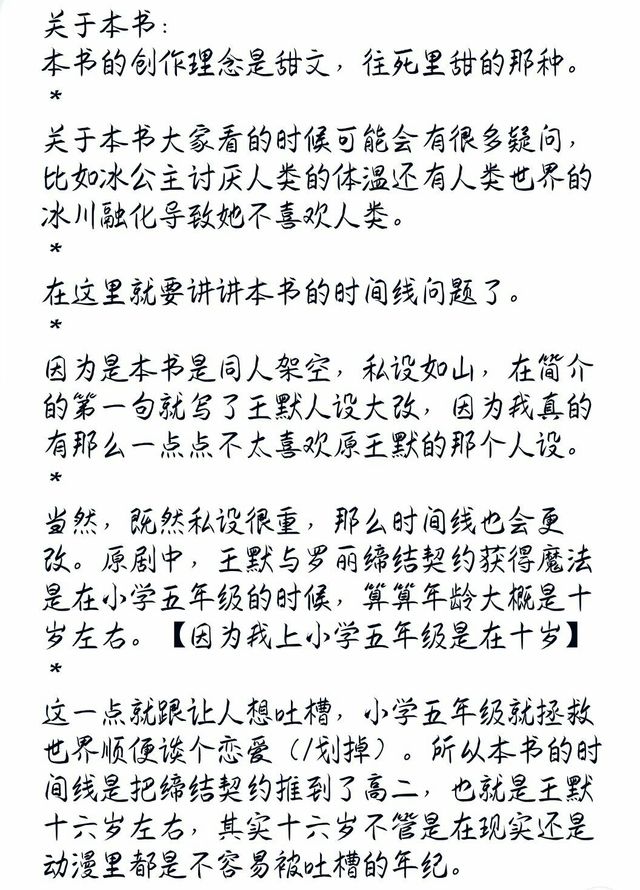 关于本书:
本书的创作理念是甜文，往死里甜的那种。
*
关于本书大家看的时候可能会有很多疑问，
比如冰公主讨厌人类的体温还有人类世界的
冰川融化导致她不喜欢人类。
*
在这里就要讲讲本书的时间线问题了。
*
因为是本书是同人架空，私设如山，在简介
的第一句就写了王默人设大改，因为我真的
有那么一点点不太喜欢原王默的那个人设。
*
当然，既然私设很重，那么时间线也会更
改。原剧中，王默与罗丽缔结契约获得魔法
是在小学五年级的时候，算算年龄大概是十
岁左右。【因为我上小学五年级是在十岁】
*
这一点就跟让人想吐槽，小学五年级就拯救
世界顺便谈个恋爱（/划掉）。所以本书的时
间线是把缔结契约推到了高二，也就是王默
十六岁左右，其实十六岁不管是在现实还是
动漫里都是不容易被吐槽的年纪。